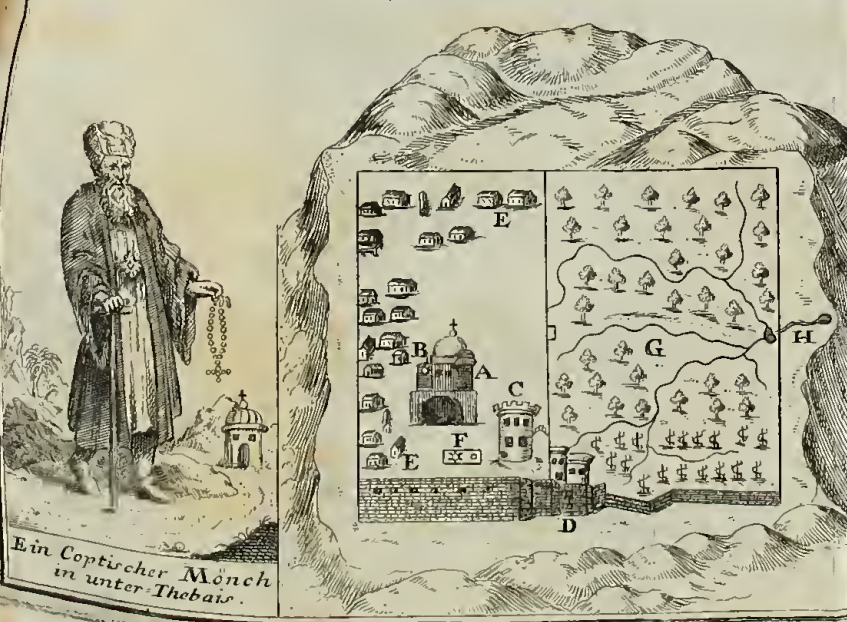 Ein Coptischer Mönch
in unter-Thebais.
E
B
A
C
G
H
F
E
D